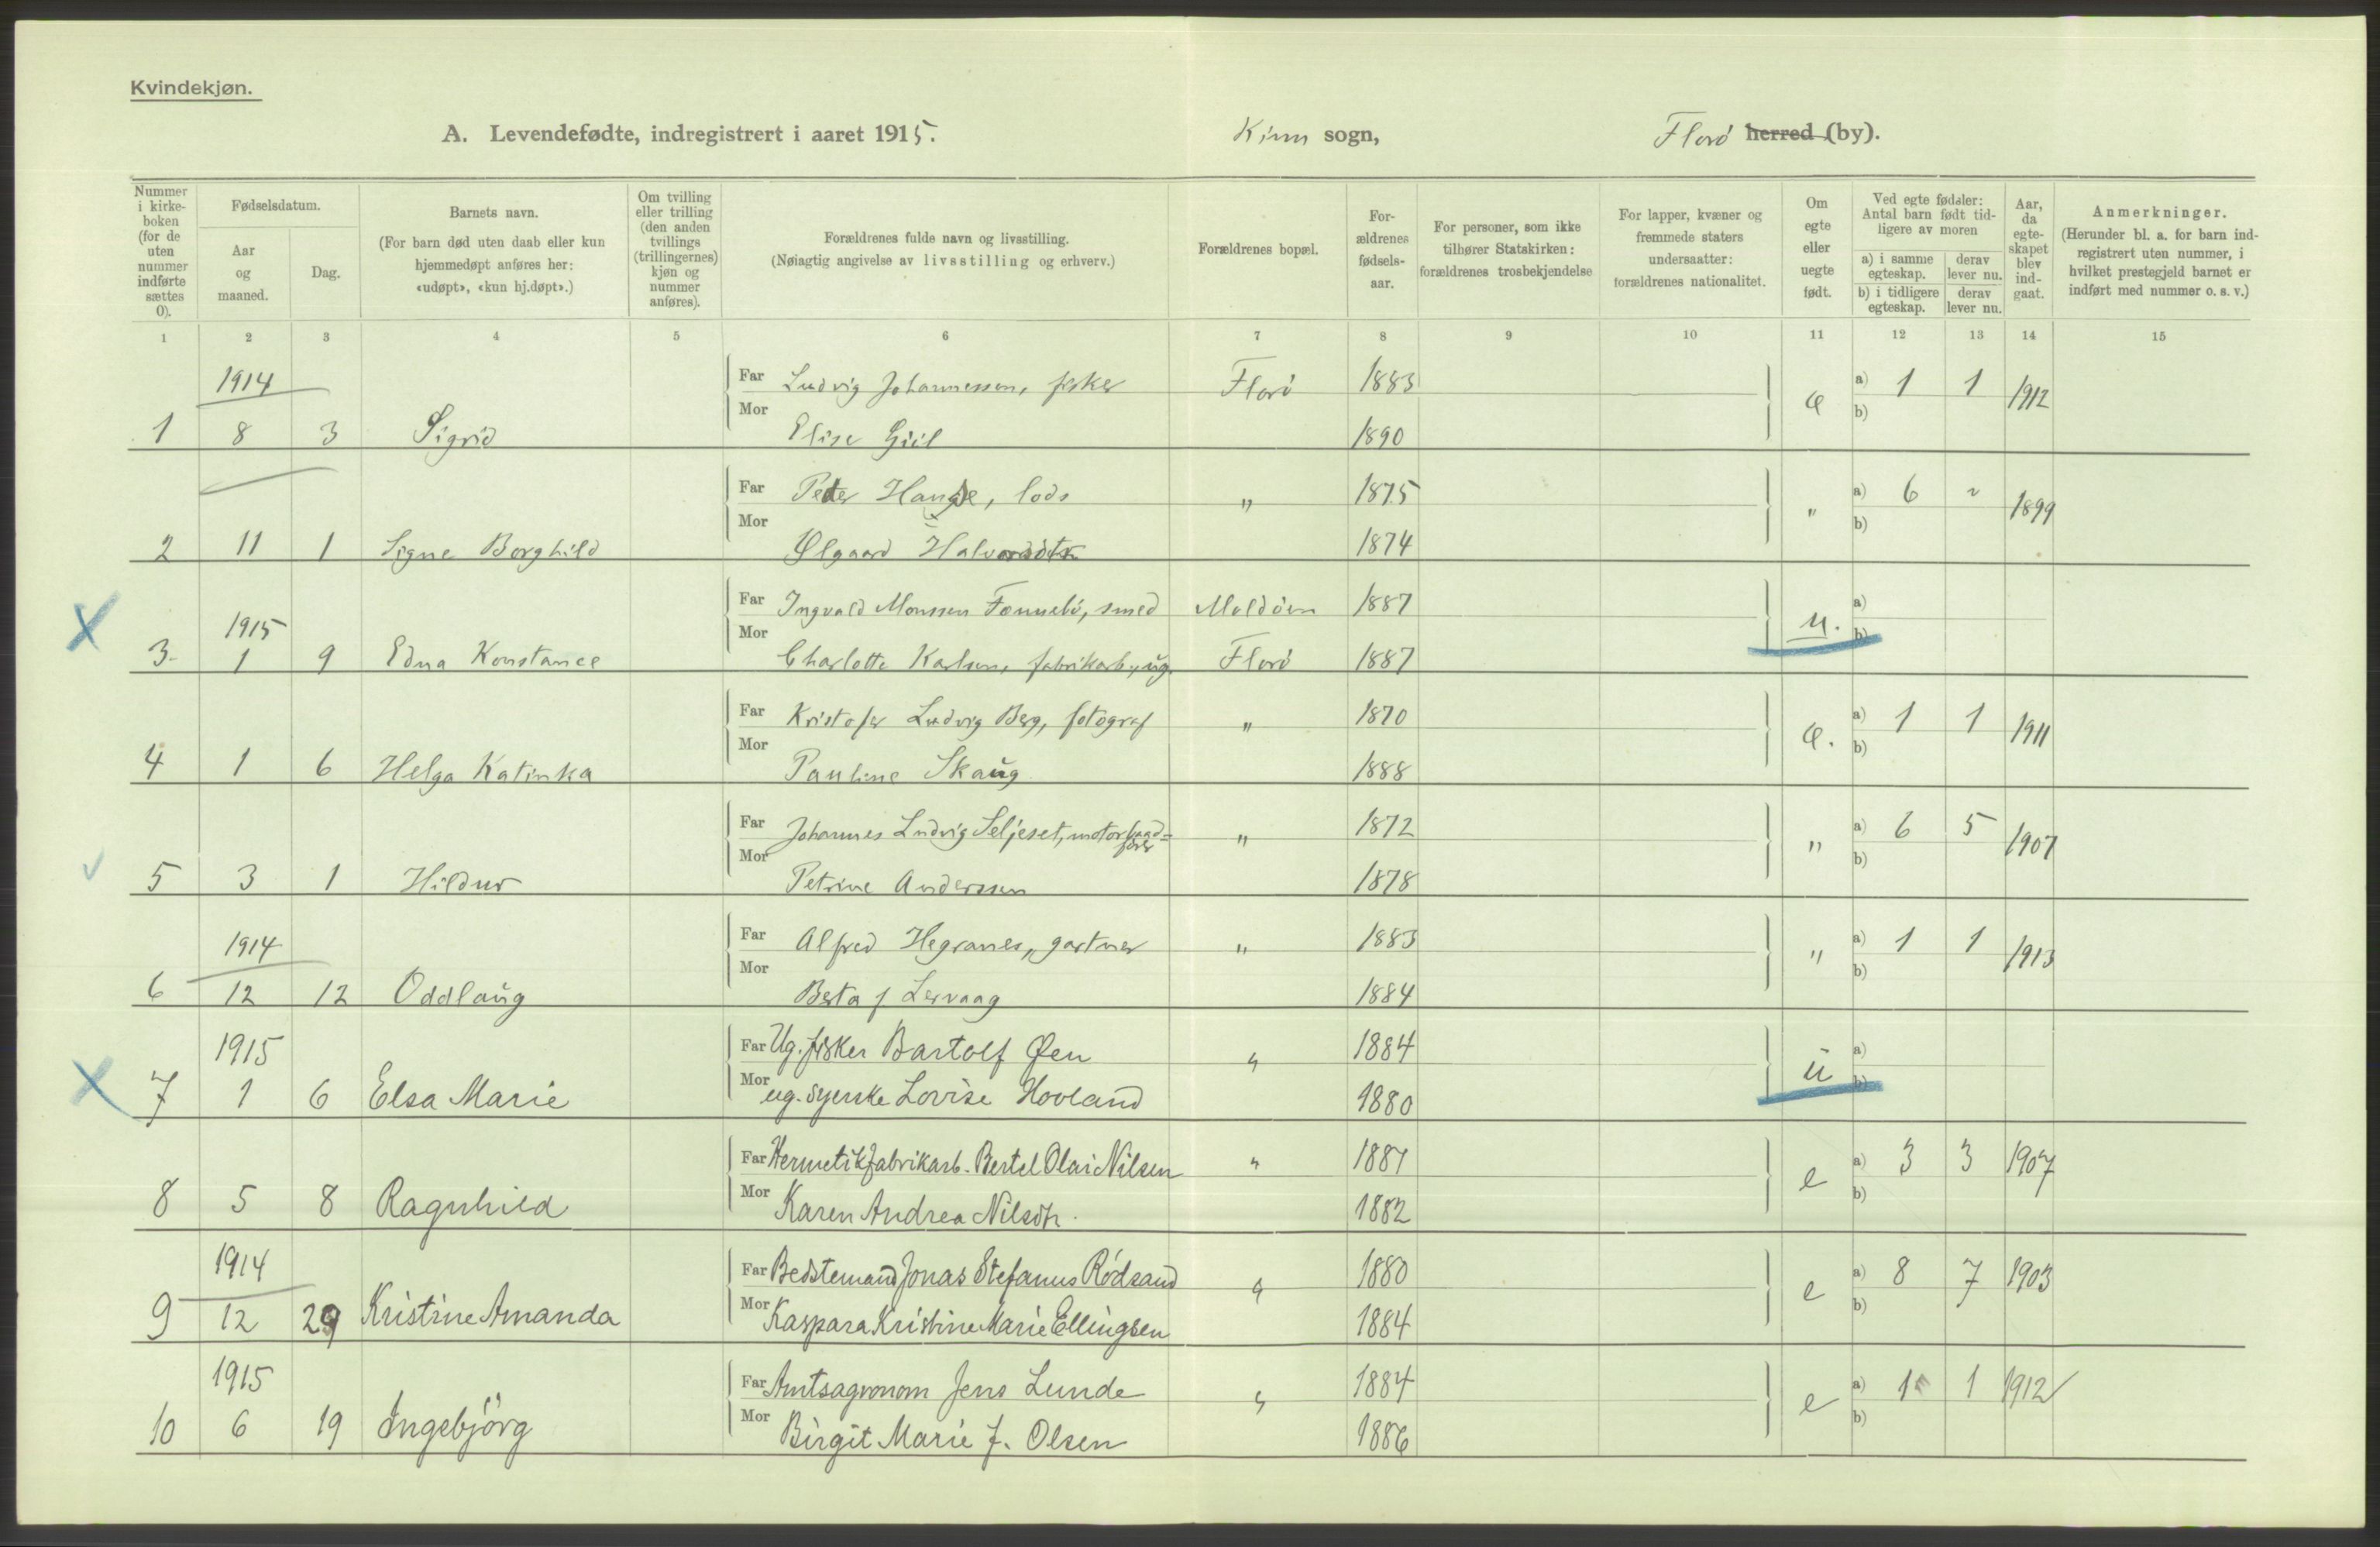 Kvindekjøn.
A. Levendefødte, indregistrert i aaret 1915. Kinn sogn, Florö herred (by).
Nummer i kirke-boken (for de uten nummer indførte sættes 0).
Fødselsdatum.
Aar og maaned.
Dag.
Barnets navn.
(For barn død uten daab eller kun hjemmedøpt anføres her: «udøpt», «kun hj.døpt».)
Om tvilling eller trilling (den anden tvillings (trillingernes) kjøn og nummer anføres).
Forældrenes fulde navn og livsstilling.
(Nøiagtig angivelse av livsstilling og erhverv.)
Forældrenes bopæl.
For-ældrenes fødsels-aar.
For personer, som ikke tilhører Statskirken: forældrenes trosbekjendelse
For lapper, kvæner og fremmede staters undersaatter: forældrenes nationalitet.
Om egte eller uegte født.
Ved egte fødsler: Antal barn født tid-ligere av moren
a) i samme egteskap. derav lever nu.
b) i tidligere egteskap. derav lever nu.
Aar, da egte-skapet blev ind-gaat.
Anmerkninger.
(Herunder bl. a. for barn ind-registrert uten nummer, i hvilket prestegjeld barnet er indført med nummer o. s. v.)
1 2 3 4 5 6 7 8 9 10 11 12 13 14 15
1914 Far Ludvig Johannessen, fisker Florö 1883 e a) 1 1 1912
1 8 3 Sigrid Mor Elise 1890 b)
Far Peter, lods " 1875 " a) 6 1899
2 11 1 Signe Borghild Mor Ølgaard Halvorsdtr 1874 b)
1915 Far Ingvald Monssen, smed Moldöen 1887 u. a)
3 1 9 Edna Konstance Mor Charlotte Karlsen, fabrikarb., ug. Florö 1887 b)
Far Kristofer Ludvig Berg, fotograf " 1870 e. a) 1 1 1911
4 1 6 Helga Katinka Mor Pauline Skaug 1888 b)
Far Johannes Ludvig Seljeset, motorbaad= fører " 1872 " a) 6 5 1907
5 3 1 Hildur Mor Petrine Anderssen 1878 b)
1914 Far Alfred Hegranes, gartner " 1883 " a) 1 1 1913
6 12 12 Oddlaug Mor Berta J Lervaag 1884 b)
1915 Far Ug. fisker Bartolf Øen " 1884 u a)
7 1 6 Elsa Marie Mor ug. syerske Lovise Hovland 1880 b)
Far Hermetikfabrikarb. Bertel Olai Nilsen " 1887 e a) 3 3 1907
8 5 8 Ragnhild Mor Karen Andrea Nilsdtr. 1882 b)
1914 Far Bedstemand Jonas Stefanus Rödsand " 1880 e a) 8 7 1903
9 12 29 Kristine Amanda Mor Kaspara Kristine Marie Ellingsen 1884 b)
1915 Far Amtsagronom Jens Lunde " 1884 e a) 1 1 1912
10 6 19 Ingebjörg Mor Birgit Marie J. Olsen 1886 b)